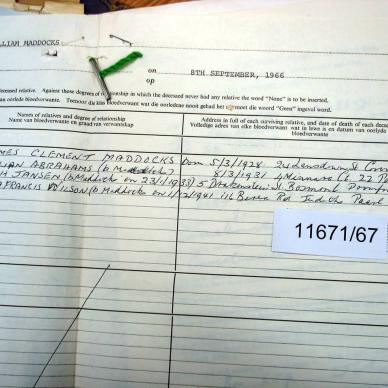 LLIAM MADDOCKS
on
op
8TH SEPTEMBER, 1966
deceased relative. Against those degrees of relationship in which the deceased never had any relative the word "None" is to be inserted.
van oorlede bloedverwante. Teenoor die graad van bloedverwant wat die oorledene nooit gehad het nie moet die woord "Geen" ingevul word.
Names of relatives and degree of relationship
Name van bloedverwante en graad van verwantskap
Address in full of each surviving relative, and date of death of each deceased
Volledige adres van elke bloedverwant wat in lewe is en datum van oorlyde
bloedverwant
MES CLEMENT MADDOCKS born 5/3/1928 24 Lansdown St
LIAN ABRAHAMS (b Maddocks) 8/3/1931
H JANSEN (b Maddocks on 23/1/1933) 5 Drakenstein St Bosmont
FRANCIS WILSON (b Maddocks on 1/12/1941) 116 Rd Paarl
11671/67